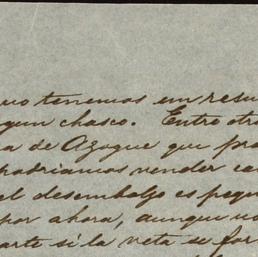 no tenemos un resu
gun chasco. Entre otr
a de Azogue que pro
podriamos vender ca
el desembolso es pequ
por ahora, aunque no
arte si la veta se for